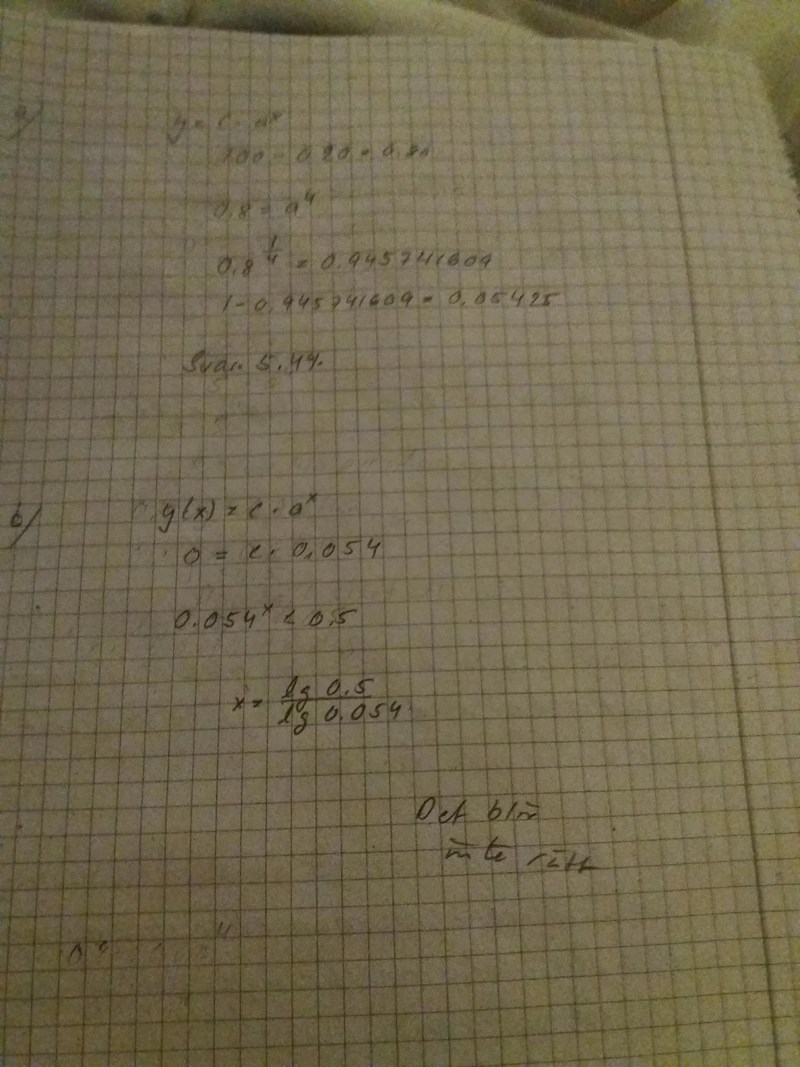 a)
y = c · a^x
100 - 0.20 = 0.80
0,8 = a^4
0,8^1/4 = 0.945741609
1 - 0,945741609 = 0,05425
Svar. 5.4%.
b)
y(x) = c · a^x
0 = c · 0,054
0.054^x < 0.5
x = lg 0.5 / lg 0.054
Det blir
inte rätt